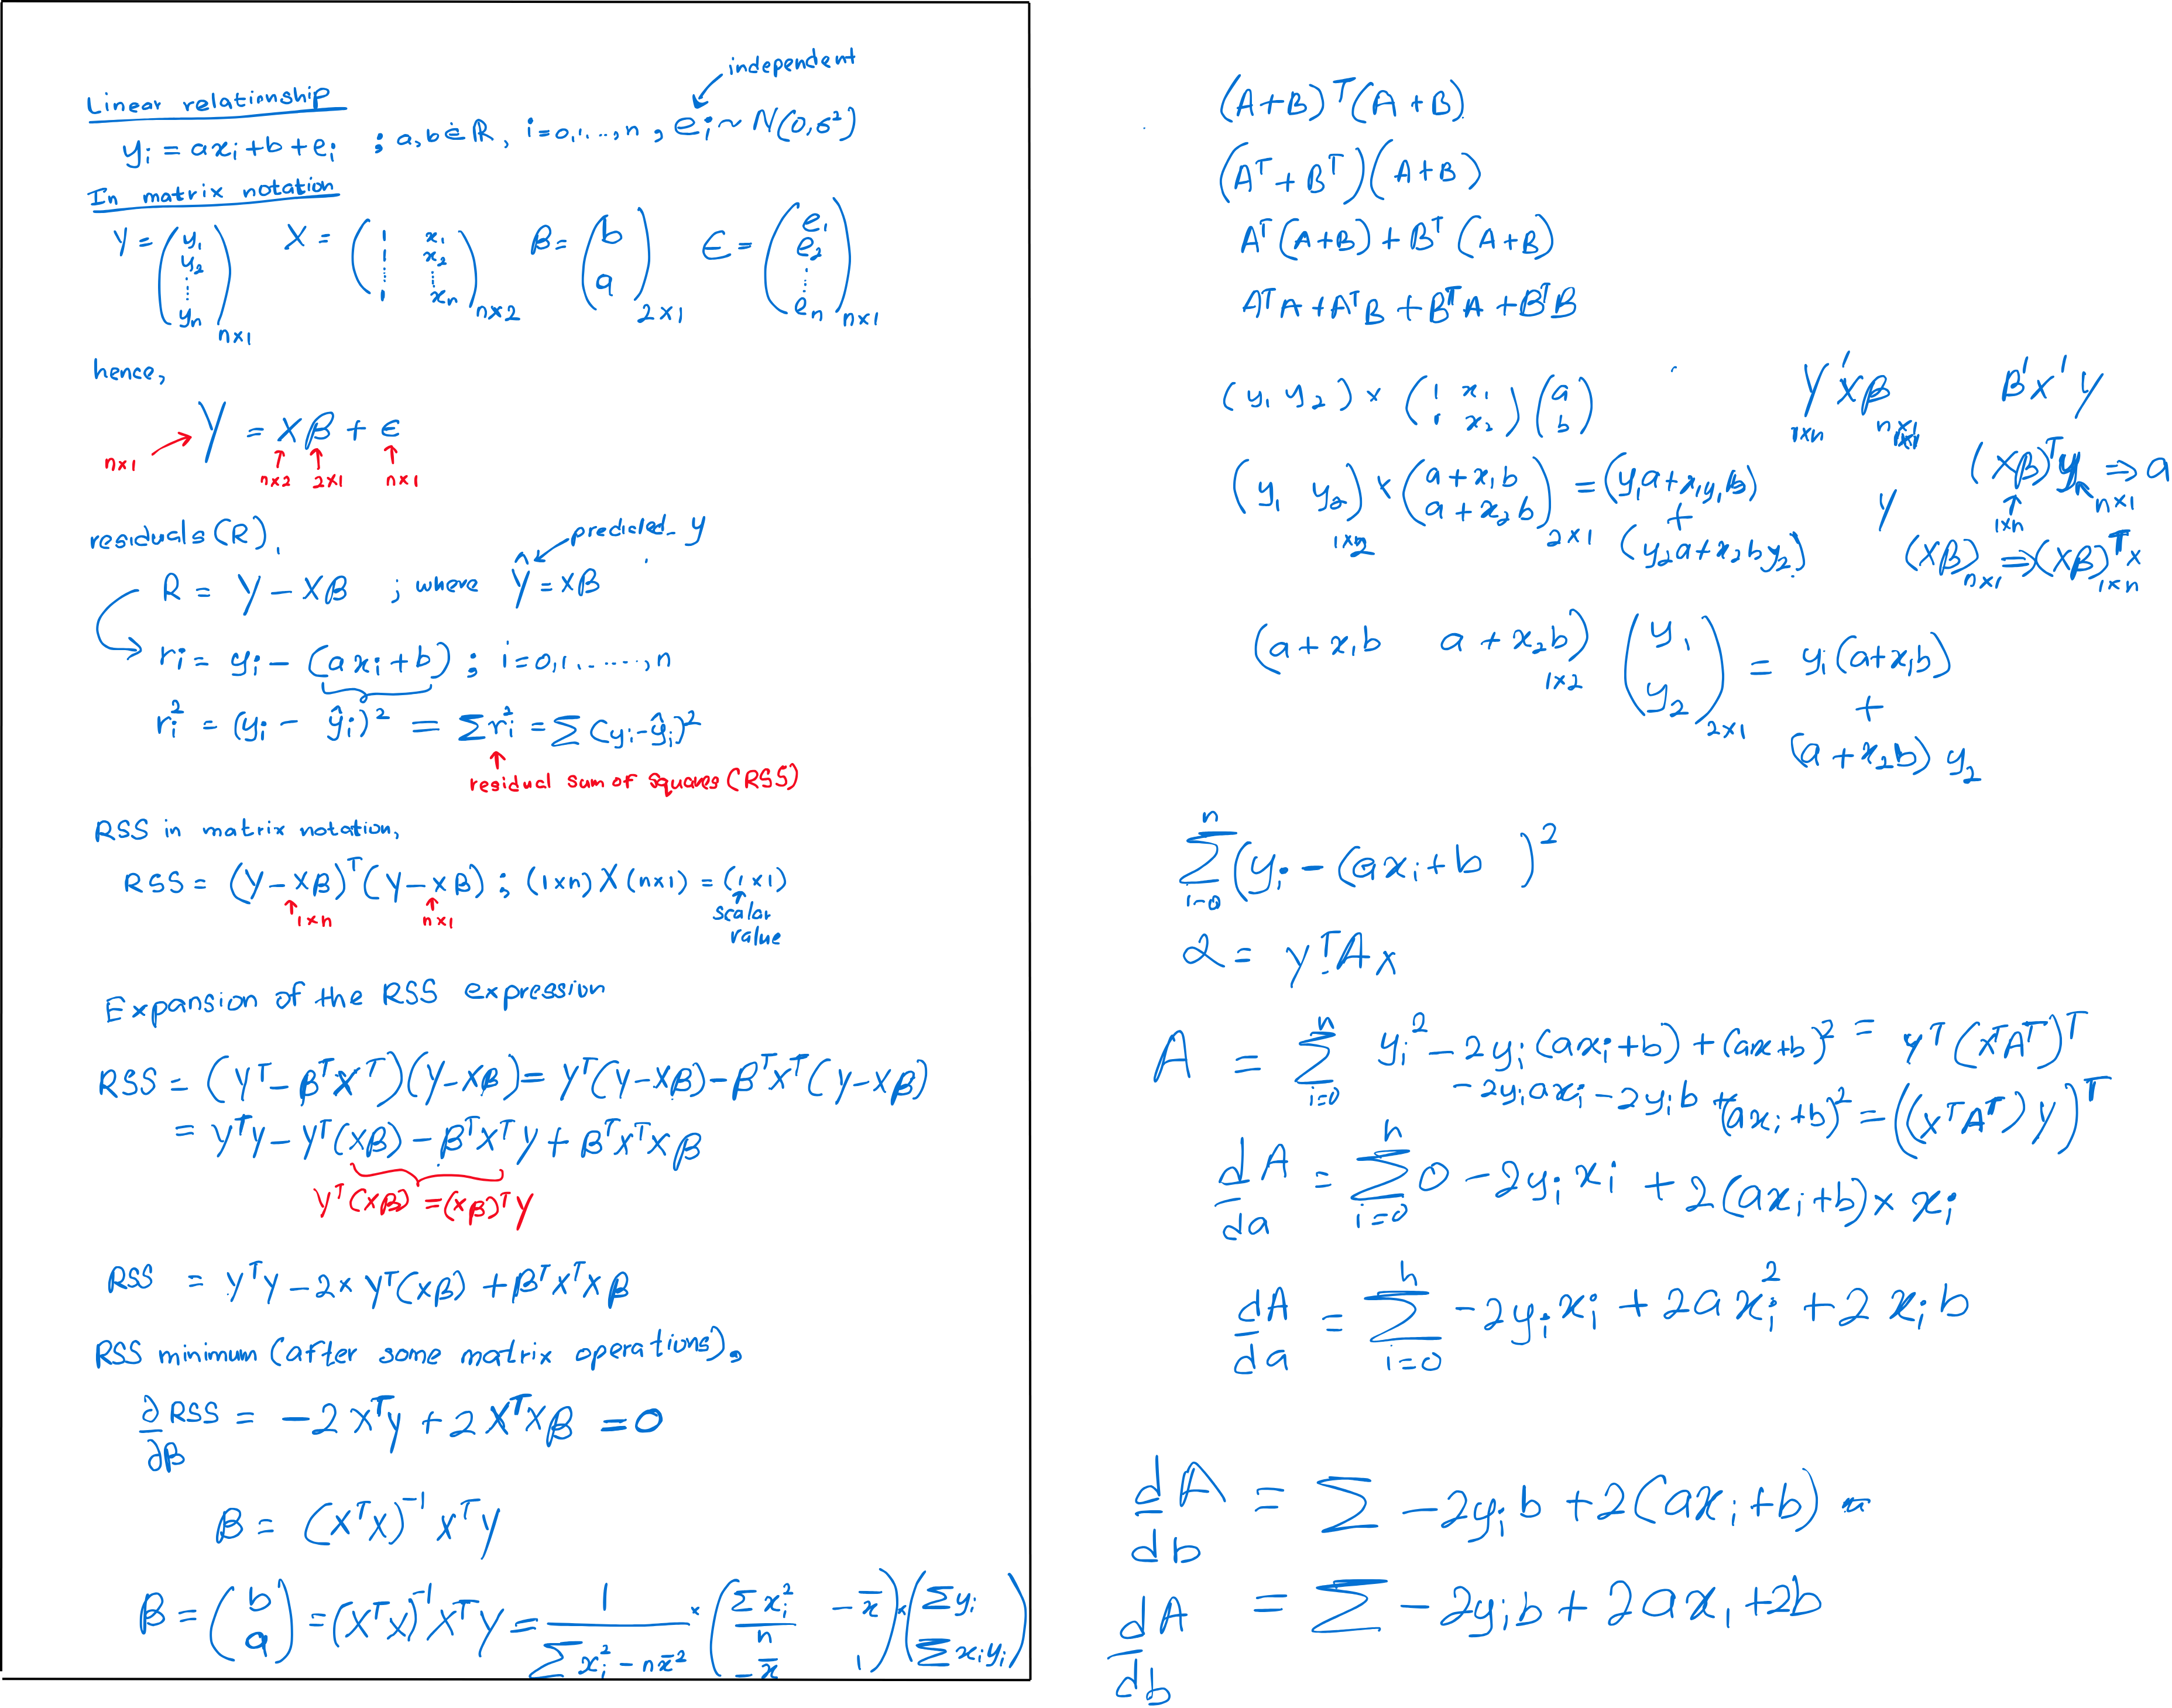 independent
Linear relationship
yᵢ = axᵢ+b+eᵢ ; a, b ∈ ℝ, i=0,1,...,n, eᵢ ~ N(0, σ²)
In matrix notation
Y = (y₁ y₂ ⋮ yₙ)ₙₓ₁ X = (1 x₁ 1 x₂ ⋮ ⋮ 1 xₙ)ₙₓ₂ β = (b a)₂ₓ₁ ϵ = (e₁ e₂ ⋮ eₙ)ₙₓ₁
hence,
Y = Xβ + ϵ
n×1 n×2 2×1 n×1
residuals (R),
predicted y
R = Y − Xβ ; where Ŷ = Xβ
rᵢ = yᵢ − (axᵢ+b) ; i=0,1,......,n
rᵢ² = (yᵢ − ŷᵢ)² = Σrᵢ² = Σ(yᵢ−ŷᵢ)²
residual sum of squares (RSS)
RSS in matrix notation,
RSS = (Y−Xβ)ᵀ(Y−Xβ) ; (1×n) X (n×1) = (1×1)
1×n n×1 scalar
value
Expansion of the RSS expression
RSS = (Yᵀ−βᵀXᵀ)(Y−Xβ) = Yᵀ(Y−Xβ)−βᵀXᵀ(Y−Xβ)
= YᵀY − Yᵀ(Xβ) − βᵀXᵀY + βᵀXᵀXβ
Yᵀ(Xβ) = (Xβ)ᵀY
RSS = YᵀY − 2×Yᵀ(Xβ) + βᵀXᵀXβ
RSS minimum (after some matrix operations),
∂/∂β RSS = −2XᵀY + 2XᵀXβ = 0
β = (XᵀX)⁻¹XᵀY
β = (b a) = (XᵀX)⁻¹XᵀY = 1/(Σxᵢ² − nx̄²) × (Σxᵢ²/n −x̄ −x̄ 1) × (Σyᵢ Σxᵢyᵢ)
(A+B)ᵀ(A+B)
(Aᵀ+Bᵀ)(A+B)
Aᵀ(A+B)+Bᵀ(A+B)
AᵀA+AᵀB+BᵀA+BᵀB
(y₁ y₂) × (1 x₁ 1 x₂)(a b)
Y'Xβ β'X'Y
1×n
(Xβ)ᵀy ⇒ a
1×n n×1
(y₁ y₂)×(a+x₁b a+x₂b)₂ₓ₁ = (y₁a+x₁y₁b) + (y₂a+x₂by₂)
1×2
Y
(Xβ)ₙₓ₁ ⇒ (Xβ)ᵀ₁ₓₙ
(a+x₁b a+x₂b)₁ₓ₂ (y₁ y₂)₂ₓ₁ = y₁(a+x₁b) + (a+x₂b) y₂
Σⁿᵢ₌₀ (yᵢ − (axᵢ+b )²
α = yᵀAx
A = Σⁿᵢ₌₀ yᵢ² − 2yᵢ(axᵢ+b) + (ax+b)² = yᵀ(xᵀAᵀ)ᵀ
− 2yᵢaxᵢ − 2yᵢb + (axᵢ+b)² = ((xᵀAᵀ)y)ᵀ
dA/da = Σⁿᵢ₌₀ 0 − 2yᵢxᵢ + 2(axᵢ+b)× xᵢ
dA/da = Σⁿᵢ₌₀ −2yᵢxᵢ + 2axᵢ² + 2xᵢb
d/db A = Σ −2yᵢb + 2(axᵢ+b)
d/db A = Σ −2yᵢb + 2ax₁ + 2b